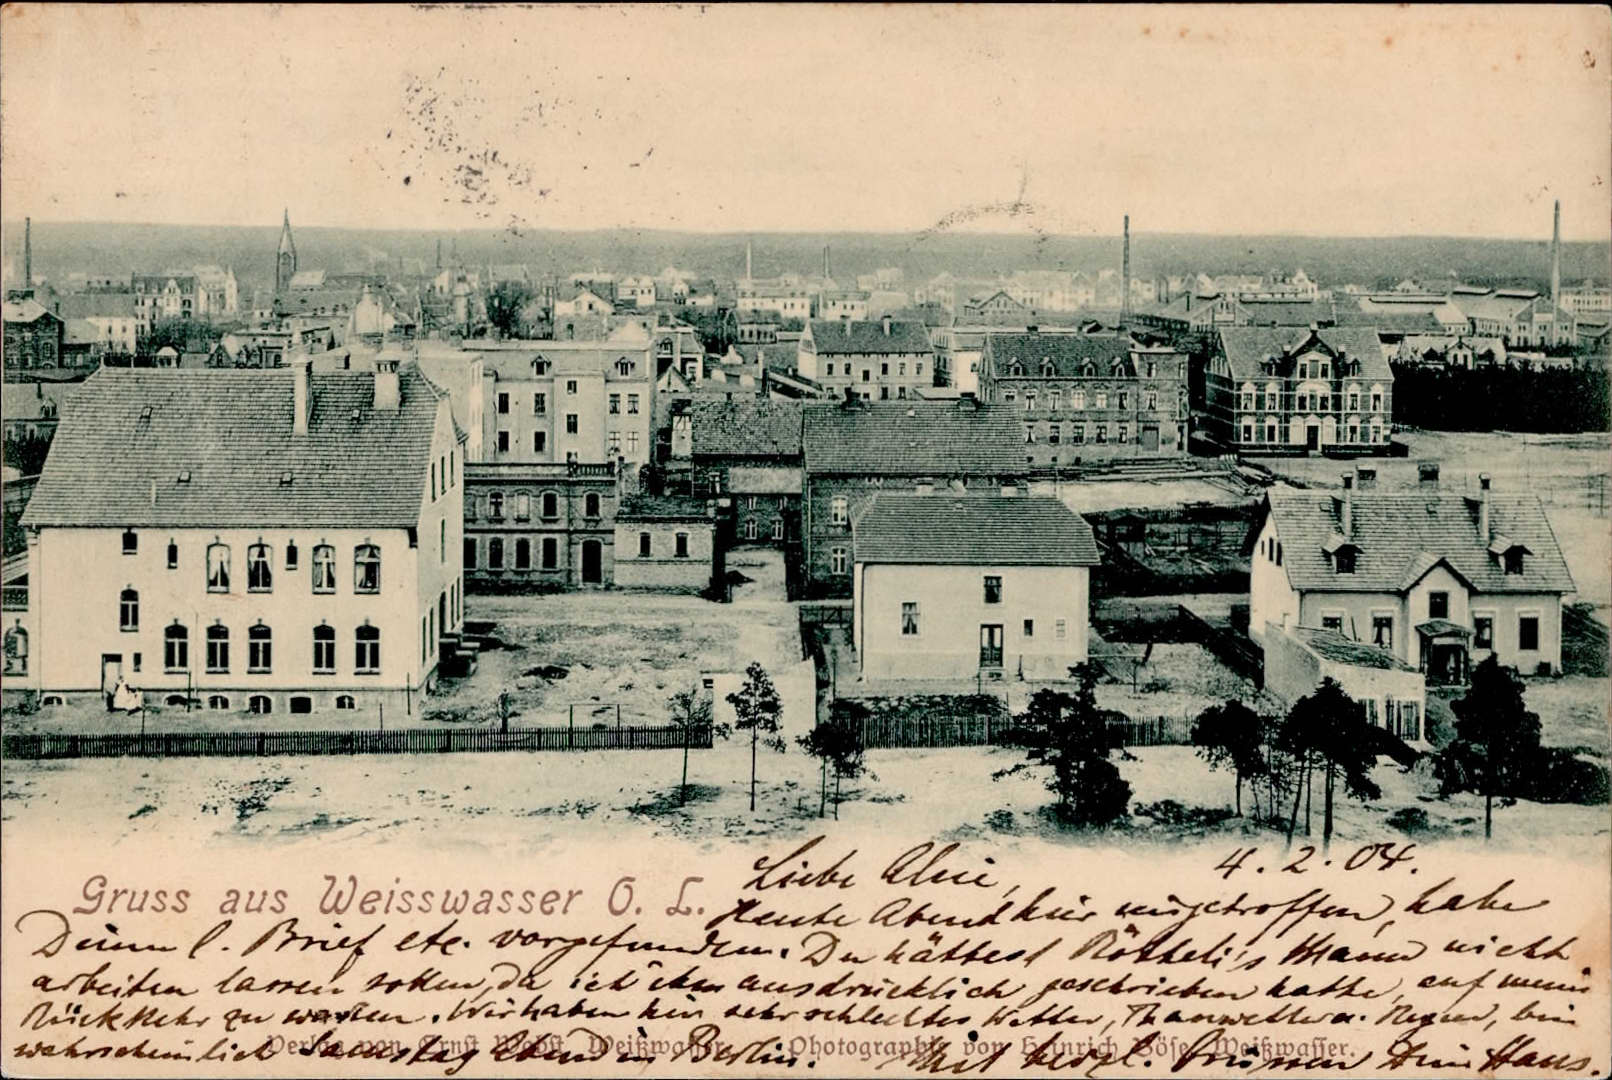 Gruss aus Weisswasser O. L.
Liebe Alice, 4. 2. 04.
Heute Abend hier eingetroffen, habe
Deinen l. Brief etc. vorgefunden. Du hättest Rötheli's Mann nicht
arbeiten lassen sollen, da ich ihm ausdrücklich geschrieben hatte, auf meine
Rückkehr zu warten. Wir haben hier sehr schlechtes Wetter, Thauwetter u. Regen, bin
wahrscheinlich Samstag Abend in Berlin. Mit herzl. Grüssen Dein Hans.
Verlag von Ernst Weißwasser. Photographie von Heinrich Böse, Weißwasser.